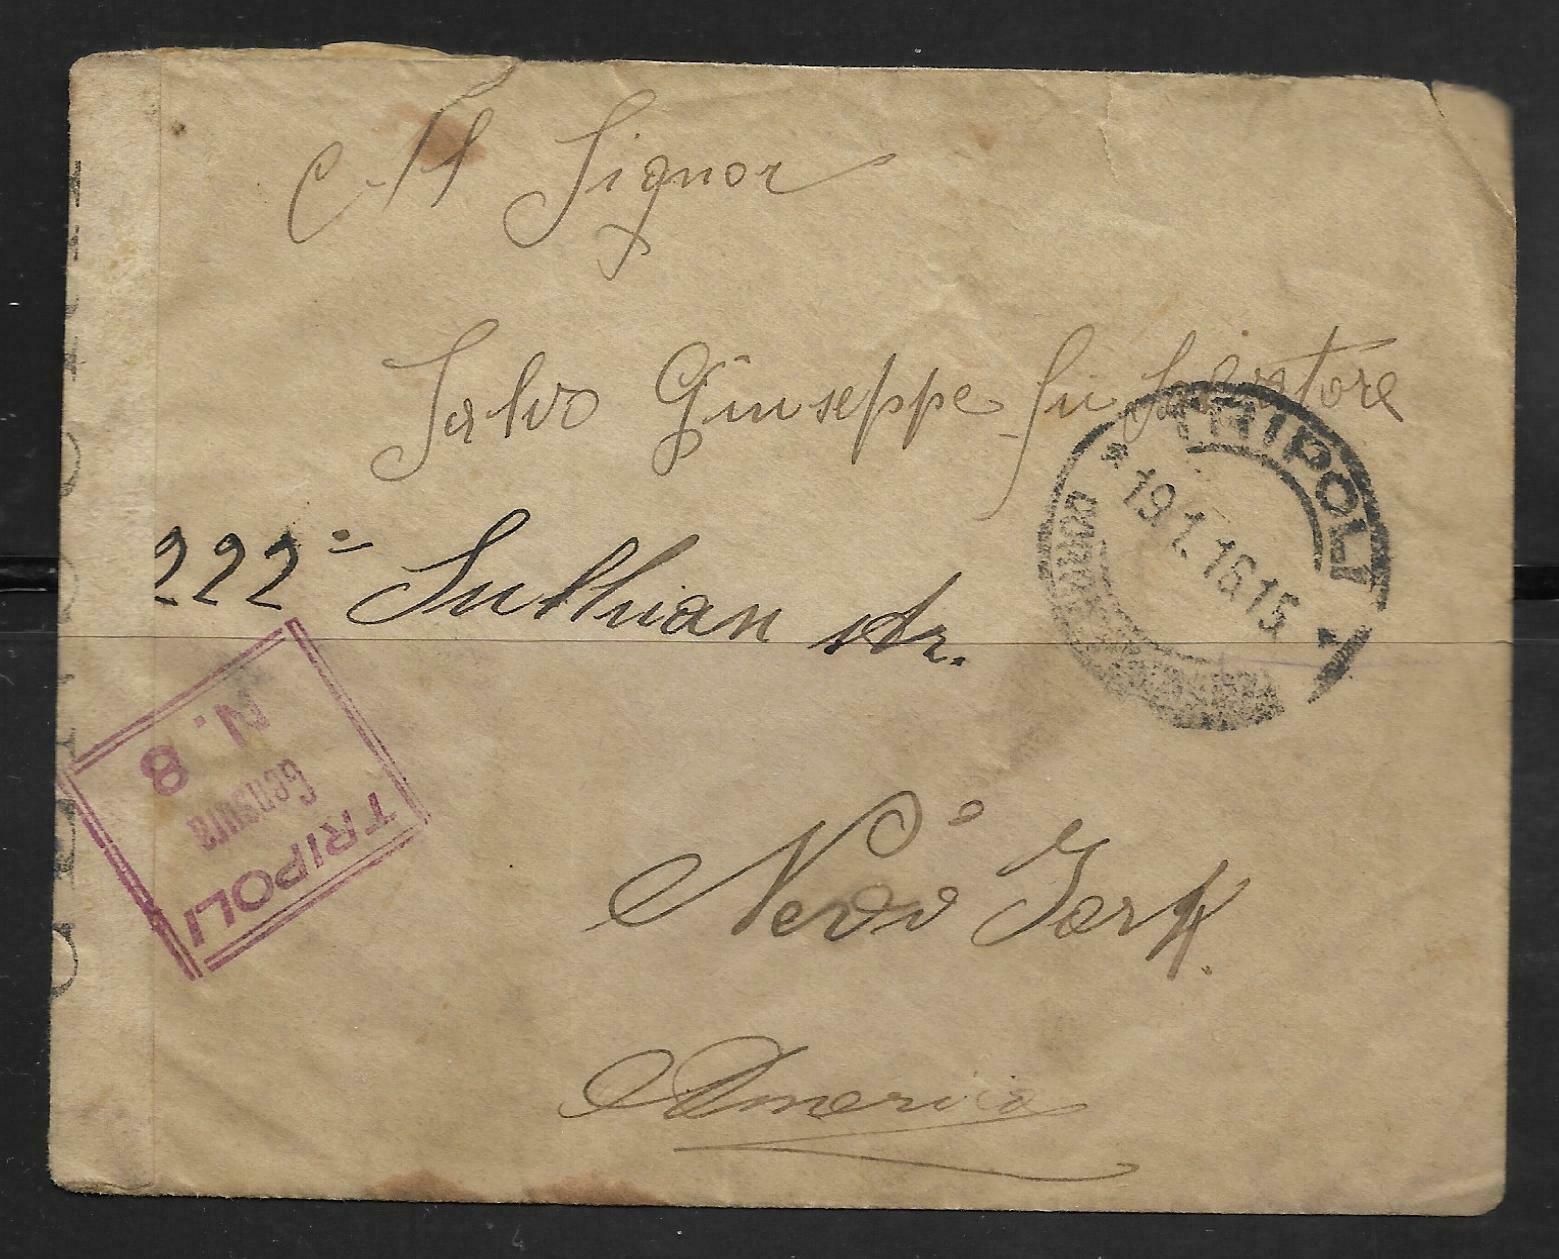 Al Signor
Salvo Giuseppe fu Salvatore
222 Sullivan str.
Nevvi Jork.
America
TRIPOLI
* 19.1.16 15 *
TRIPOLI
Censura
N. 8